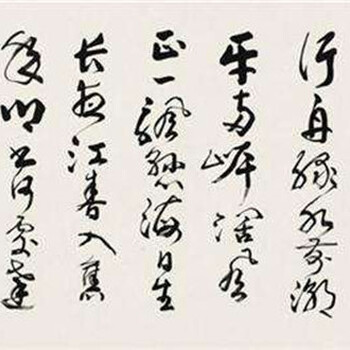 行舟绿水前潮
平两岸阔风
正一帆悬海日生
残夜江春入旧
年乡书何处达